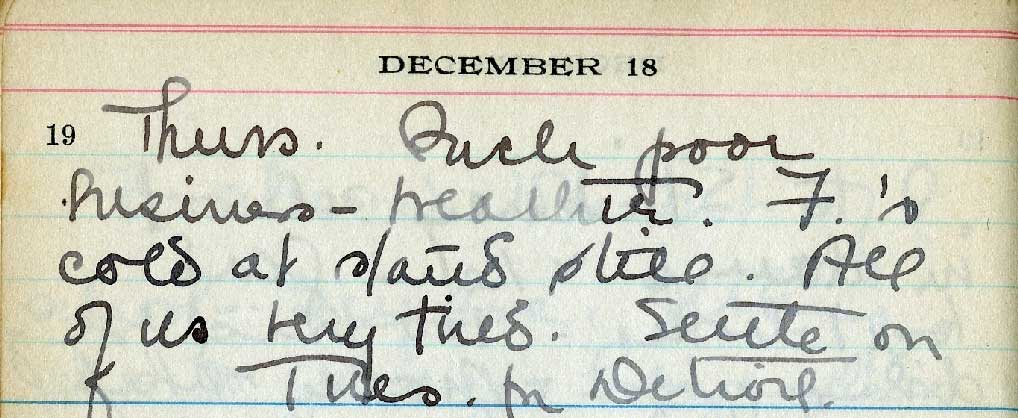 DECEMBER 18
19 Thurs. Such poor
business - weather. F.'s
cold at stand still. All
of us very tired. Settle on
Tues. for Detroit.